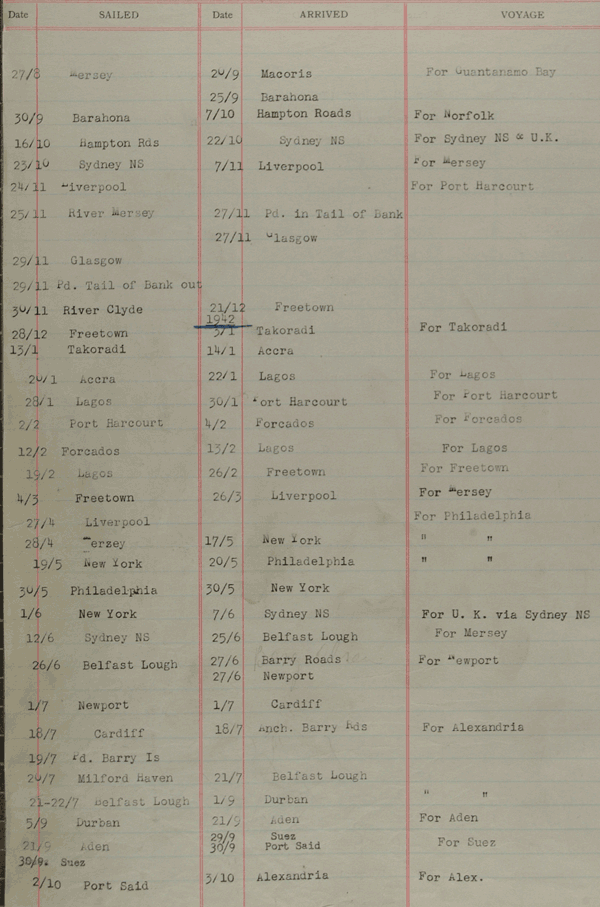 Date SAILED Date ARRIVED VOYAGE
27/8 Mersey 20/9 Macoris For Guantanamo Bay
25/9 Barahona
30/9 Barahona 7/10 Hampton Roads For Norfolk
16/10 Hampton Rds 22/10 Sydney NS For Sydney NS & U.K.
23/10 Sydney NS 7/11 Liverpool For Mersey
24/11 Liverpool For Port Harcourt
25/11 River Mersey 27/11 Pd. in Tail of Bank
27/11 Glasgow
29/11 Glasgow
29/11 Pd. Tail of Bank out
30/11 River Clyde 21/12 Freetown
1942
28/12 Freetown 3/1 Takoradi For Takoradi
13/1 Takoradi 14/1 Accra
20/1 Accra 22/1 Lagos For Lagos
28/1 Lagos 30/1 Port Harcourt For Port Harcourt
2/2 Port Harcourt 4/2 Forcados For Forcados
12/2 Forcados 13/2 Lagos For Lagos
19/2 Lagos 26/2 Freetown For Freetown
4/3 Freetown 26/3 Liverpool For Mersey
27/4 Liverpool For Philadelphia
28/4 Merzey 17/5 New York " "
19/5 New York 20/5 Philadelphia " "
30/5 Philadelphia 30/5 New York
1/6 New York 7/6 Sydney NS For U. K. via Sydney NS
12/6 Sydney NS 25/6 Belfast Lough For Mersey
26/6 Belfast Lough 27/6 Barry Roads For Newport
27/6 Newport
1/7 Newport 1/7 Cardiff
18/7 Cardiff 18/7 Anch. Barry Rds For Alexandria
19/7 Pd. Barry Is
20/7 Milford Haven 21/7 Belfast Lough
21-22/7 Belfast Lough 1/9 Durban " "
5/9 Durban 21/9 Aden For Aden
29/9 Suez
21/9 Aden 30/9 Port Said For Suez
30/9. Suez
2/10 Port Said 3/10 Alexandria For Alex.